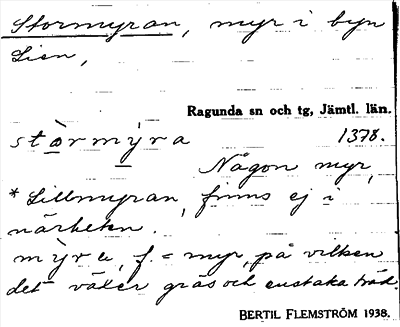 Stormyran, myr i byn
Lien,
Ragunda sn och tg, Jämtl. län.
stòrmỳra 1378.
Någon myr,
*Lillmyran, finns ej i
närheten.
mỳra, f = myr, på vilken
det växer gräs och enstaka träd.
BERTIL FLEMSTRÖM 1938.